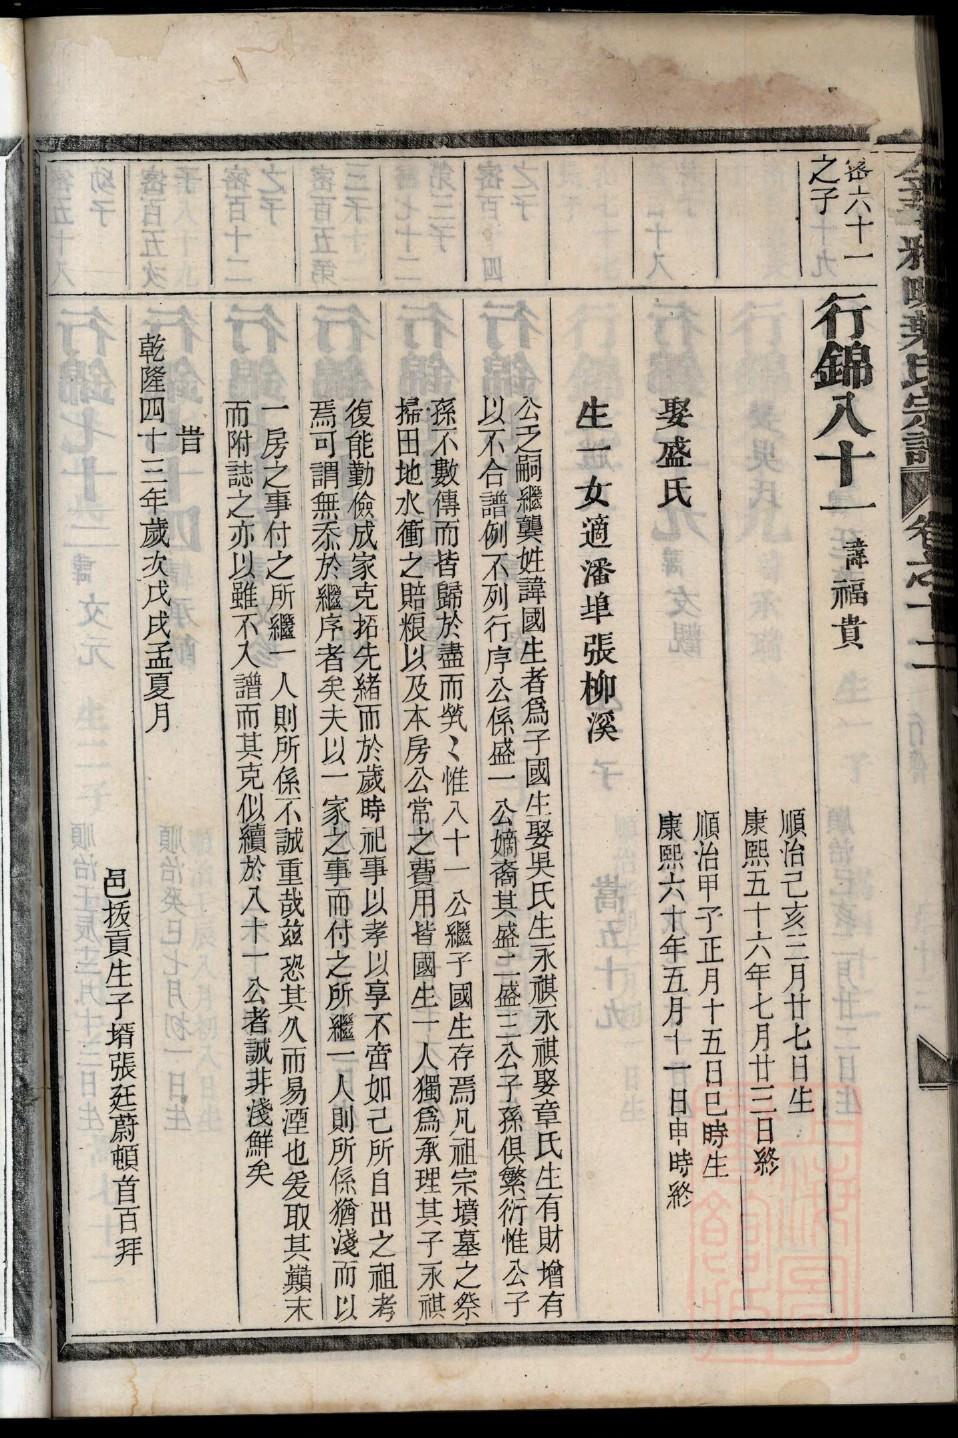 葉氏宗譜 卷之十二
密六十一
之子
行錦八十一 諱福貴
順治己亥三月廿七日生
康熙五十六年七月廿三日終
娶盛氏
順治甲子正月十五日巳時生
康熙六十年五月十一日申時終
生一女適潘埠張柳溪
公乏嗣繼龔姓諱國生者爲子國生娶吳氏生永祺永祺娶章氏生有財增有
以不合譜例不列行序公係盛一公嫡裔其盛二盛三公子孫俱繁衍惟公子
孫不數傳而皆歸於盡而煢〻惟八十一公繼子國生存焉凡祖宗墳墓之祭
掃田地水衝之賠粮以及本房公常之費用皆國生一人獨爲承理其子永祺
復能勤儉成家克拓先緒而於歲時祀事以孝以享不啻如己所自出之祖考
焉可謂無忝於繼序者矣夫以一家之事而付之所繼一人則所係猶淺而以
一房之事付之所繼一人則所係不誠重哉茲恐其久而易湮也爰取其巔末
而附誌之亦以雖不入譜而其克似續於八十一公者誠非淺鮮矣
旹
乾隆四十三年歲次戊戌孟夏月
邑拔貢生子壻張廷蔚頓首百拜